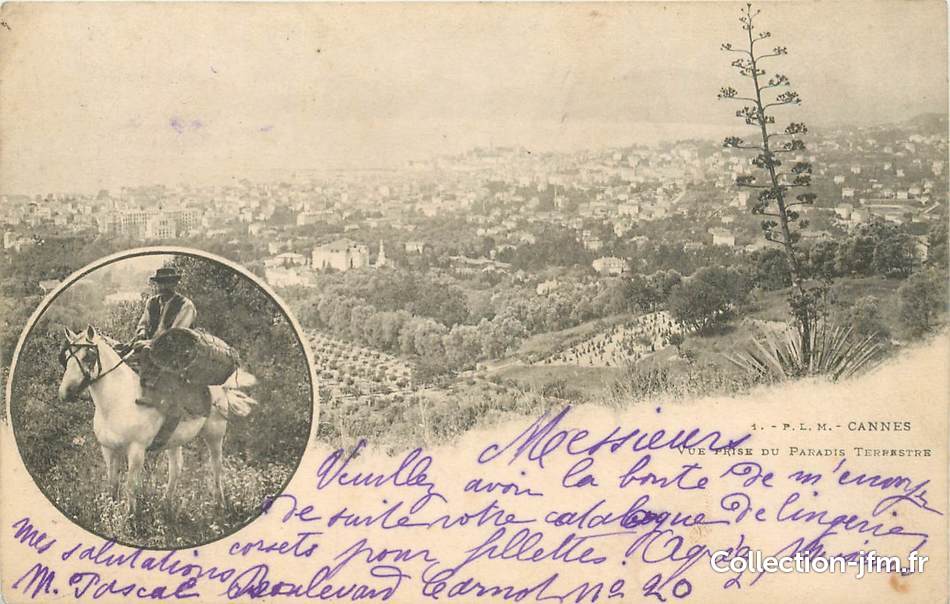 1. - P. L. M. - CANNES
VUE PRISE DU PARADIS TERRESTRE
Messieurs
Veuillez avoir la bonté de m'envoyer
de suite votre catalogue de lingerie
corsets pour fillettes. Agréez,
mes salutations
M. Pascal Boulevard Carnot No 20
Collection-jfm.fr